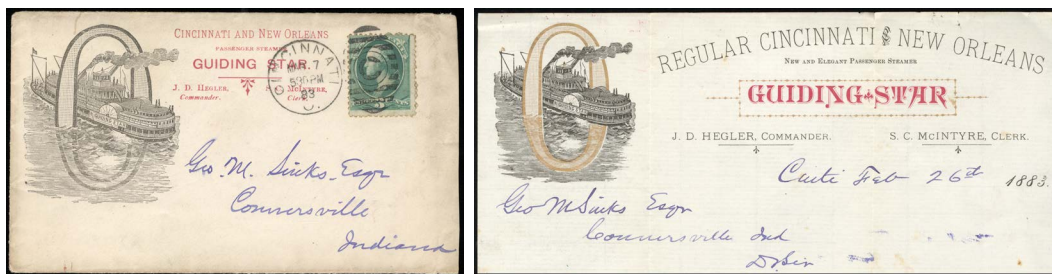 CINCINNATI AND NEW ORLEANS
PASSENGER STEAMER
GUIDING STAR.
J. D. HEGLER, Commander.
McINTYRE, Clerk.
CINCINNATI
MAR. 7
5 30 PM
83
O.
Geo. M. Sinks. Esqr
Connersville
Indiana
REGULAR CINCINNATI AND NEW ORLEANS
NEW AND ELEGANT PASSENGER STEAMER
GUIDING STAR
J. D. HEGLER, COMMANDER. S. C. McINTYRE, CLERK.
Cinti Feb 26th 1883.
Geo M Sinks Esqr
Connersville Ind
D. Sir